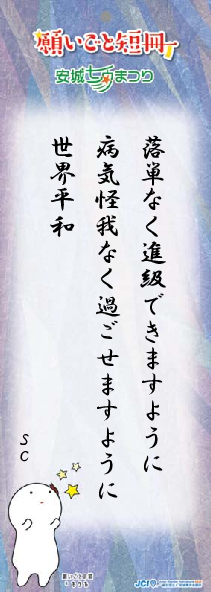 願いごと短冊
安城七夕まつり
落単なく進級できますように
病気怪我なく過ごせますように
世界平和
SC
願いごと短冊
JCI